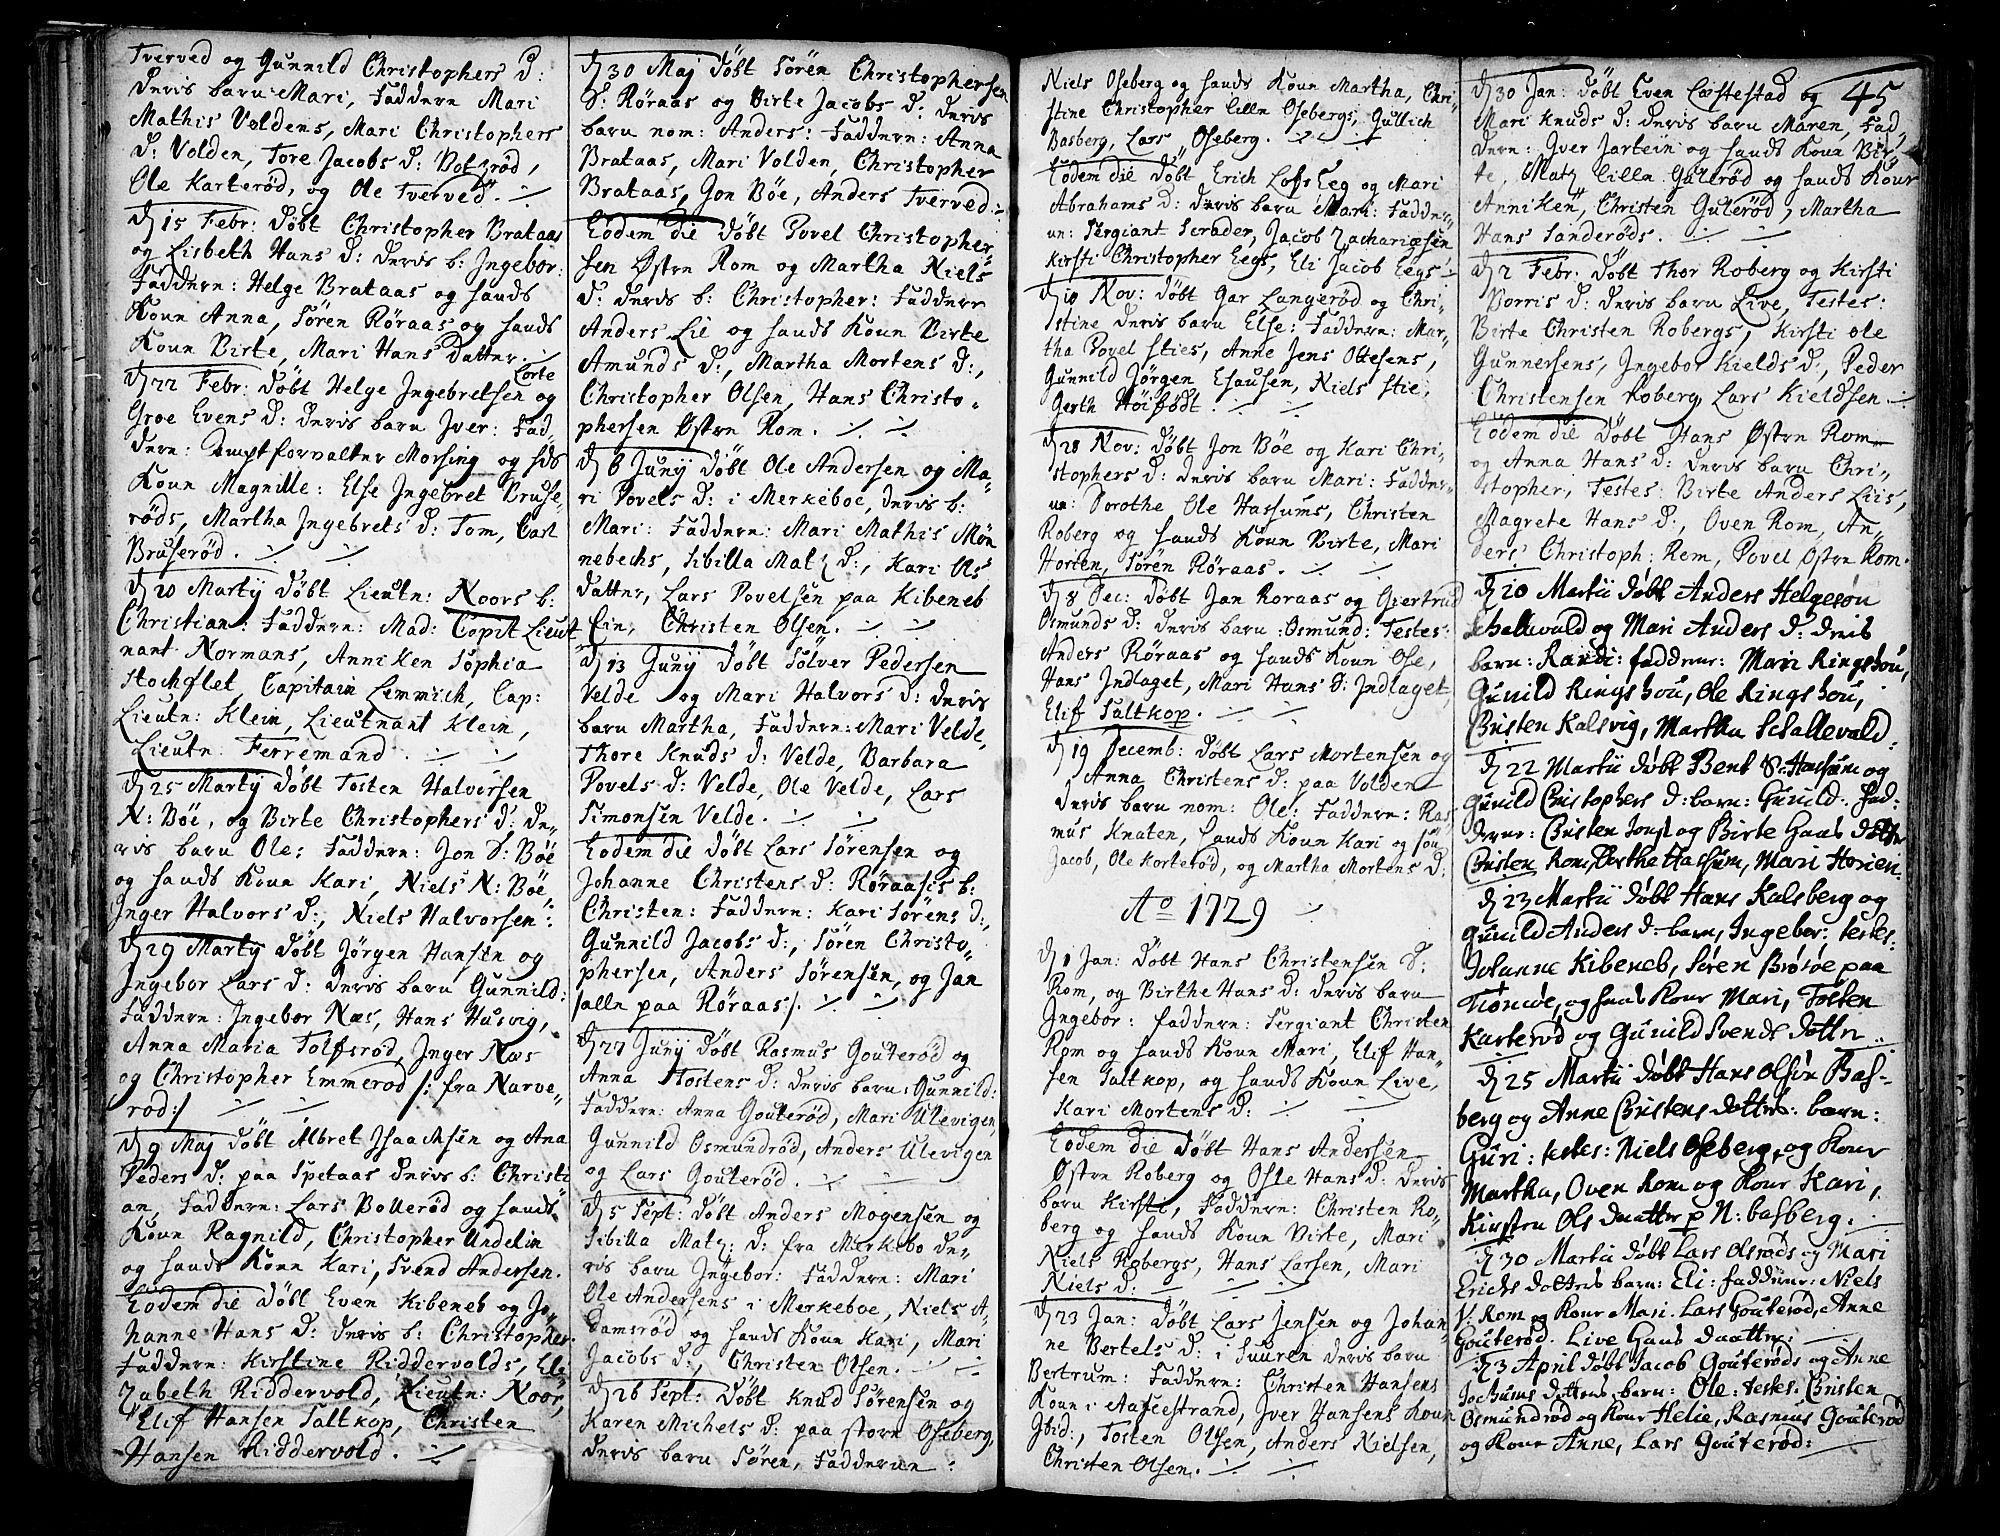 Tverved og Gunnild Christophers D:
deris barn Mari, Faddere Mari
Mathis Voldens, Mari Christophers
D: Volden, Tore Jacobs D: Botzrød,
Ole Karterød, og Ole Tverved.
D 15 Febr: døbt Christopher Brataas
og Lisbeth Hans D: deris b: Ingebor:
Faddere: Helge Brataas og hands
Kone Anna, Sören Röraas og hands
Kone Birte, Mari Hans Datter.
D 22 Febr: døbt Helge Ingebretsen Lorte og
Groe Evens D: deris barn Iver: Fad-
dere: Amptforvalter Morsing og hds
Kone Magnille: Else Ingebret Bruse-
röds, Martha Ingebrets D: Tom, Carl
Bruserød.
D 20 Martij døbt Lieutn: Noors b:
Christian: Faddere: Mad: Capit Lieut
nant Normans, Anniken Sophia
Stochflet, Capitain Lemmich, Cap:
Lieutn: Klein, Lieutnant Klein,
Lieutn Ferremand.
D 25 Martij døbt Tosten Halvorsen
N: Böe, og Birte Christophers D: de-
ris barn Ole: Faddere: Jon S: Böe
og hands Kone Kari, Niels N: Böe,
Inger Halvors D:, Niels Halvorsen:
D 29 Martij døbt Jörgen Hansen og
Ingebor Lars D: deris barn Gunnild:
Faddere: Ingebor Næs, Hans Husvig,
Anna Maria Tolfsrød, Inger Næs
og Christopher Emmerød /: fra Narve-
rød:/
D 9 Maj døbt Albret Isaachsen og Ana
Peders D: paa Spetaas deris b: Christi
an, Faddere: Lars Bollerød og hands
Kone Ragnild, Christopher Undelin
og hands Kone Kari, Svend Andersen.
Eodem die døbt Even Kibeneb og Jo-
hanne Hans D: deris b: Christopher.
Faddere: Kirstine Riddervolds, Eli
zabeth Riddervold, Lieutn: Noor,
Elif Hansen Saltkop, Christen
Hansen Riddervold.
D 30 Maj døbt Sören Christophersen
S: Röraas og Birte Jacobs D: deris
barn nom: Anders: Faddere: Anna
Brataas, Mari Volden, Christopher
Brataas, Jon Böe, Anders Tverved.
Eodem die døbt Povel Christopher-
sen Østre Rom og Martha Niels
D: deris b: Christopher: Faddere
Anders Lie og hands Kone Birte
Amunds D:, Martha Mortens D:,
Christopher Olsen, Hans Christo-
phersen Østre Rom.
D 6 Junij døbt Ole Andersen og Ma-
ri Povels D: i Merkeboe, deris b:
Mari: Faddere: Mari Mathis Møn
nebechs, Sibilla Matz D:, Kari Ols
datter, Lars Povelsen paa Kibeneb
Ein, Christen Olsen.
D 13 Junij døbt Sölver Pedersen
Velde og Mari Halvors D: deris
barn Martha, Faddere: Mari Velde,
Thore Knuds D: Velde, Barbara
Povels D: Velde, Ole Velde, Lars
Simonsen Velde.
Eodem die døbt Lars Sörensen og
Johanne Christens D: Röraasis b:
Christen: Faddere: Kari Sörens D:,
Gunnild Jacobs D:, Sören Christo-
phersen, Anders Sörensen, og Jan
/alle paa Röraas/.
D 27 Junij døbt Rasmus Gouterød og
Anna Tostens D: deris barn: Gunnild:
Faddere: Anna Gouterød, Mari Ulevigen,
Gunnild Osmundrød, Anders Ulevigen
og Lars Gouterød.
D 5 Sept: døbt Anders Mogensen og
Sibilla Matz: D: fra Merkebo de-
ris barn Ingebor: Faddere: Mari
Ole Andersens i Merkeboe, Niels A-
damsrød og hands Kone Kari, Mari
Jacobs D:, Christen Olsen.
D 26 Sept: døbt Knud Sörensen og
Karen Michels D: paa store Oseberg,
deris barn Sören, Fadderne:
Niels Oseberg og hands Kone Martha, Chri-
stine Christopher lille Osebergs, Gullich
Basberg, Lars Oseberg.
Eodem die döbt Erich Lofs Eeg og Mari
Abrahams D: deris barn Mari: Fadder-
ne: Sergiant Scrader, Jacob Zachariæsen
Kirsti Christopher Eegs, Eli Jacob Eegs
D 10 Nov: døbt Gar Langerød og Chri-
stine deris barn Else: Faddere: Mar-
tha Povel Sties, Anne Jens Ottesens,
Gunnild Jörgen Esausen, Niels Stie,
Gerth Höifødt.
D 28 Nov: døbt Jon Böe og Kari Chri-
stophers D: deris barn Mari: Fadder-
ne: Dorothe Ole Hassums, Christen
Roberg og hands Kone Birte, Mari
Horten, Sören Röraas.
D 8 Dec: Døbt Jan Roraas og Giertrud
Osmunds D: deris barn: Osmund: Testes:
Anders Röraas og hands Kone Ose,
Hans Indlaget, Mari Hans D: Indlaget,
Elif Saltkop.
D 19 Decemb: døbt Lars Mortensen og
Anna Christens D: paa Volden
deris barn nom: Ole: Faddere: Ras
mus Knaten, hands Kone Kari og sön
Jacob, Ole Korterød, og Martha Mortens D:
Ao 1729
D 1 Jan: døbt Hans Christensen S:
Rom, og Birthe Hans D: deris barn
Ingebor: faddere: Sergiant Christen
Rom og hands Kone Mari, Elif Han-
sen Saltkop, og hands Kone Live,
Kari Mortens D:
Eodem die Døbt Hans Andersen
Østre Roberg og Oste Hans D: deris
barn Kirsti, Faddere: Christen Ro-
berg og hands Kone Birte, Mari
Niels Robergs, Hans Larsen, Mari
Niels D:
D 23 Jan: Døbt Lars Jensen og Johan-
ne Bertels D: i Suuren deris barn
Bertrum: Faddere: Christen Hansens
Kone i Aascestrand, Iver Hansens Kone
Ibid:, Tosten Olsen, Anders Nielsen,
Christen Olsen.
45
D 30 Jan: døbt Even Lastestad og
Mari Knuds D: deris barn Maren, Fad-
dere: Iver Jartein og hands Kone Bir-
te, Matz lille Gulerød og hands Kone
Anniken, Christen Gulerød, Martha
Hans Sanderøds.
D 2 Febr: døbt Thor Roberg og Kirsti
Borris D: deris barn Live, Testes:
Birte Christen Robergs, Kirsti Ole
Gunnersens, Ingebor Kields D:, Peder
Christensen Roberg, Lars Kieldsen.
Eodem die Døbt Hans Østre Rom
og Anna Hans D: deris barn Chri-
stopher, Testes: Birte Anders Liis,
Magrete Hans D:, Oven Rom, An-
ders Christoph: Rom, Povel Østre Rom.
D 10 Martii døbt Anders Helgesøn
Schallevald og Mari Anders D: deris
barn: Randi: faddere: Mari Ringshou,
Gunild Ringshou, Ole Ringshou,
Christen Kalsvig, Martha Schallevald.
D 22 Martii døbt Bent S: Hassum og
Gunild Christophers D: barn: Gunild: fad-
derne: Christen og Birte Hans dotter
Christen Rom, Berthe Hassum, Mari Horten
D 23 Martii døbt Hans Kalsberg og
Gunild Anders D: barn, Ingebor; testes:
Johanne Kibeneb, Søren Brøtsøe paa
Tiømøe, og hands Kone Mari, Tosten
Karterød og Gunild Svends dotter
D 25 Martii døbt Hans Olsøn Bas-
berg og Anne Christens dotters: barn:
Guri: testes: Niels Oseberg, og Kone
Martha, Oven Rom og Kone Kari,
Kirsten Ols daatter p N: basberg.
D 30 Martii døbt Lars Olsrøds og Mari
Erichs dotters barn: Eli: faddere: Niels
V: Rom og Kone Mari. Lars Gouterød, Anne
Gouterød. Live Hans daatter:
D 3 April døbt Jacob Gouterøds og Anne
Jochums dotters barn: Ole: testes. Christen
Osmundrød og Kone Helie, Rasmus Gouterød
og Kone Anne, Lars Gouterød: